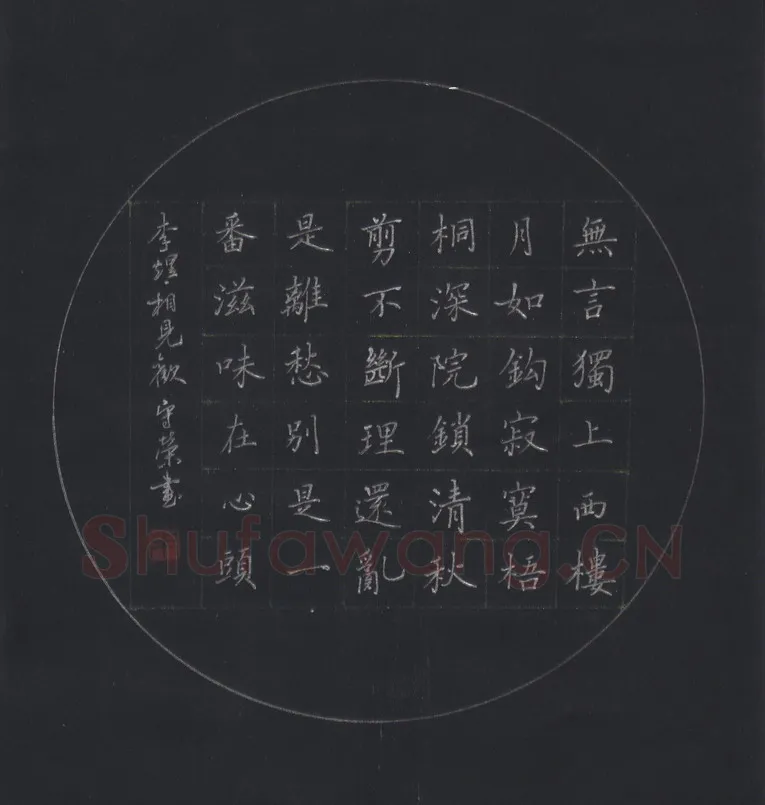 無言獨上西樓
月如鈎寂寞梧
桐深院鎖清秋
剪不斷理還亂
是離愁別是一
番滋味在心頭
李煜相見歡守榮書
Shufawang.CN